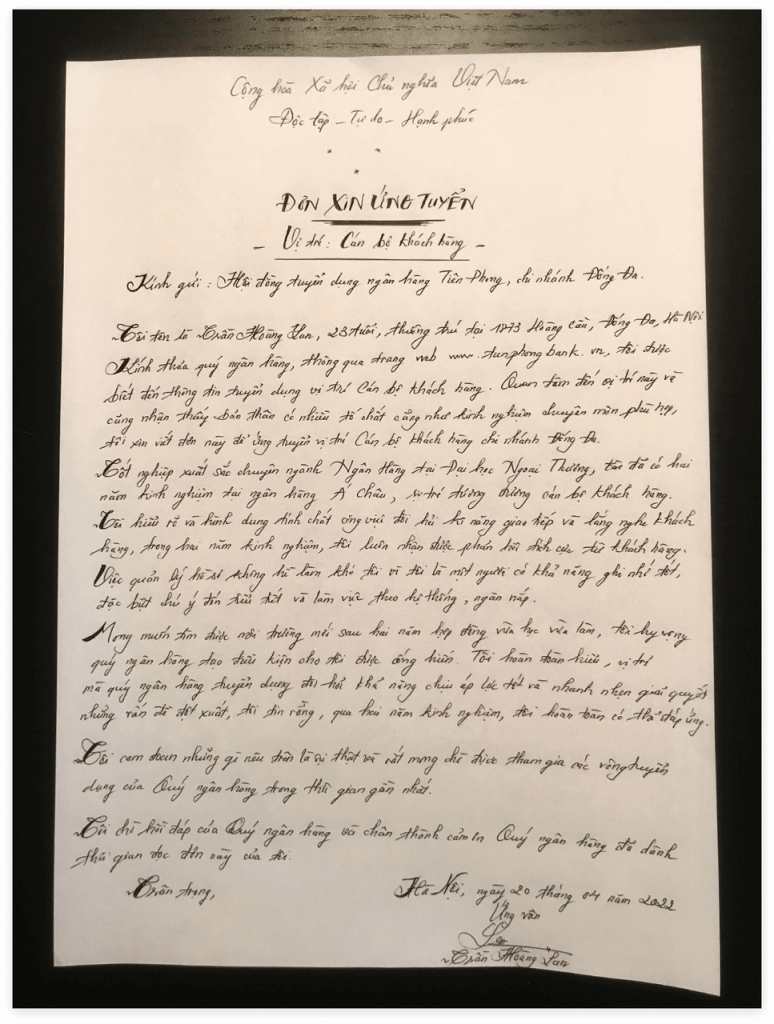 Cộng hòa Xã hội Chủ nghĩa Việt Nam
Độc lập - Tự do - Hạnh phúc
ĐƠN XIN ỨNG TUYỂN
- Vị trí: Cán bộ khách hàng -
Kính gửi: Hội đồng tuyển dụng ngân hàng Tiên Phong, chi nhánh Đống Đa.
Tôi tên là Trần Hoàng Lan, 23 tuổi, thường trú tại 1973 Hoàng Cầu, Đống Đa, Hà Nội
Kính thưa quý ngân hàng, thông qua trang web www.tunphongbank.vn, tôi được
biết đến thông tin tuyển dụng vị trí Cán bộ khách hàng. Quan tâm đến vị trí này và
cũng nhận thấy bản thân có nhiều tố chất cũng như kinh nghiệm chuyên môn phù hợp,
tôi xin viết đơn này để ứng tuyển vị trí Cán bộ khách hàng chi nhánh Đống Đa.
Tốt nghiệp xuất sắc chuyên ngành Ngân Hàng tại Đại học Ngoại Thương, tôi đã có hai
năm kinh nghiệm tại ngân hàng Á Châu, vị trí tương đương cán bộ khách hàng.
Tôi hiểu rõ và hình dung tính chất công việc đòi hỏi kĩ năng giao tiếp và lắng nghe khách
hàng, trong hai năm kinh nghiệm, tôi luôn nhận được phản hồi tích cực từ khách hàng.
Việc quản lý hồ sơ không hề làm khó tôi vì tôi là một người có khả năng ghi nhớ tốt,
đặc biệt chú ý đến tiểu tiết và làm việc theo hệ thống, ngăn nắp.
Mong muốn tìm được môi trường mới sau hai năm hợp đồng vừa học vừa làm, tôi hy vọng
quý ngân hàng tạo điều kiện cho tôi được cống hiến. Tôi hoàn toàn hiểu, vị trí
mà quý ngân hàng tuyển dụng đòi hỏi khả năng chịu áp lực tốt và nhanh nhẹn giải quyết
những vấn đề đột xuất, tôi tin rằng, qua hai năm kinh nghiệm, tôi hoàn toàn có thể đáp ứng.
Tôi cam đoan những gì nêu trên là sự thật và rất mong chờ được tham gia các vòng tuyển
dụng của Quý ngân hàng trong thời gian gần nhất.
Tôi chờ hồi đáp của Quý ngân hàng và chân thành cảm ơn Quý ngân hàng đã dành
thời gian đọc đơn này của tôi.
Trân trọng,
Hà Nội, ngày 20 tháng 04 năm 2022
Ứng viên
Lan
Trần Hoàng Lan